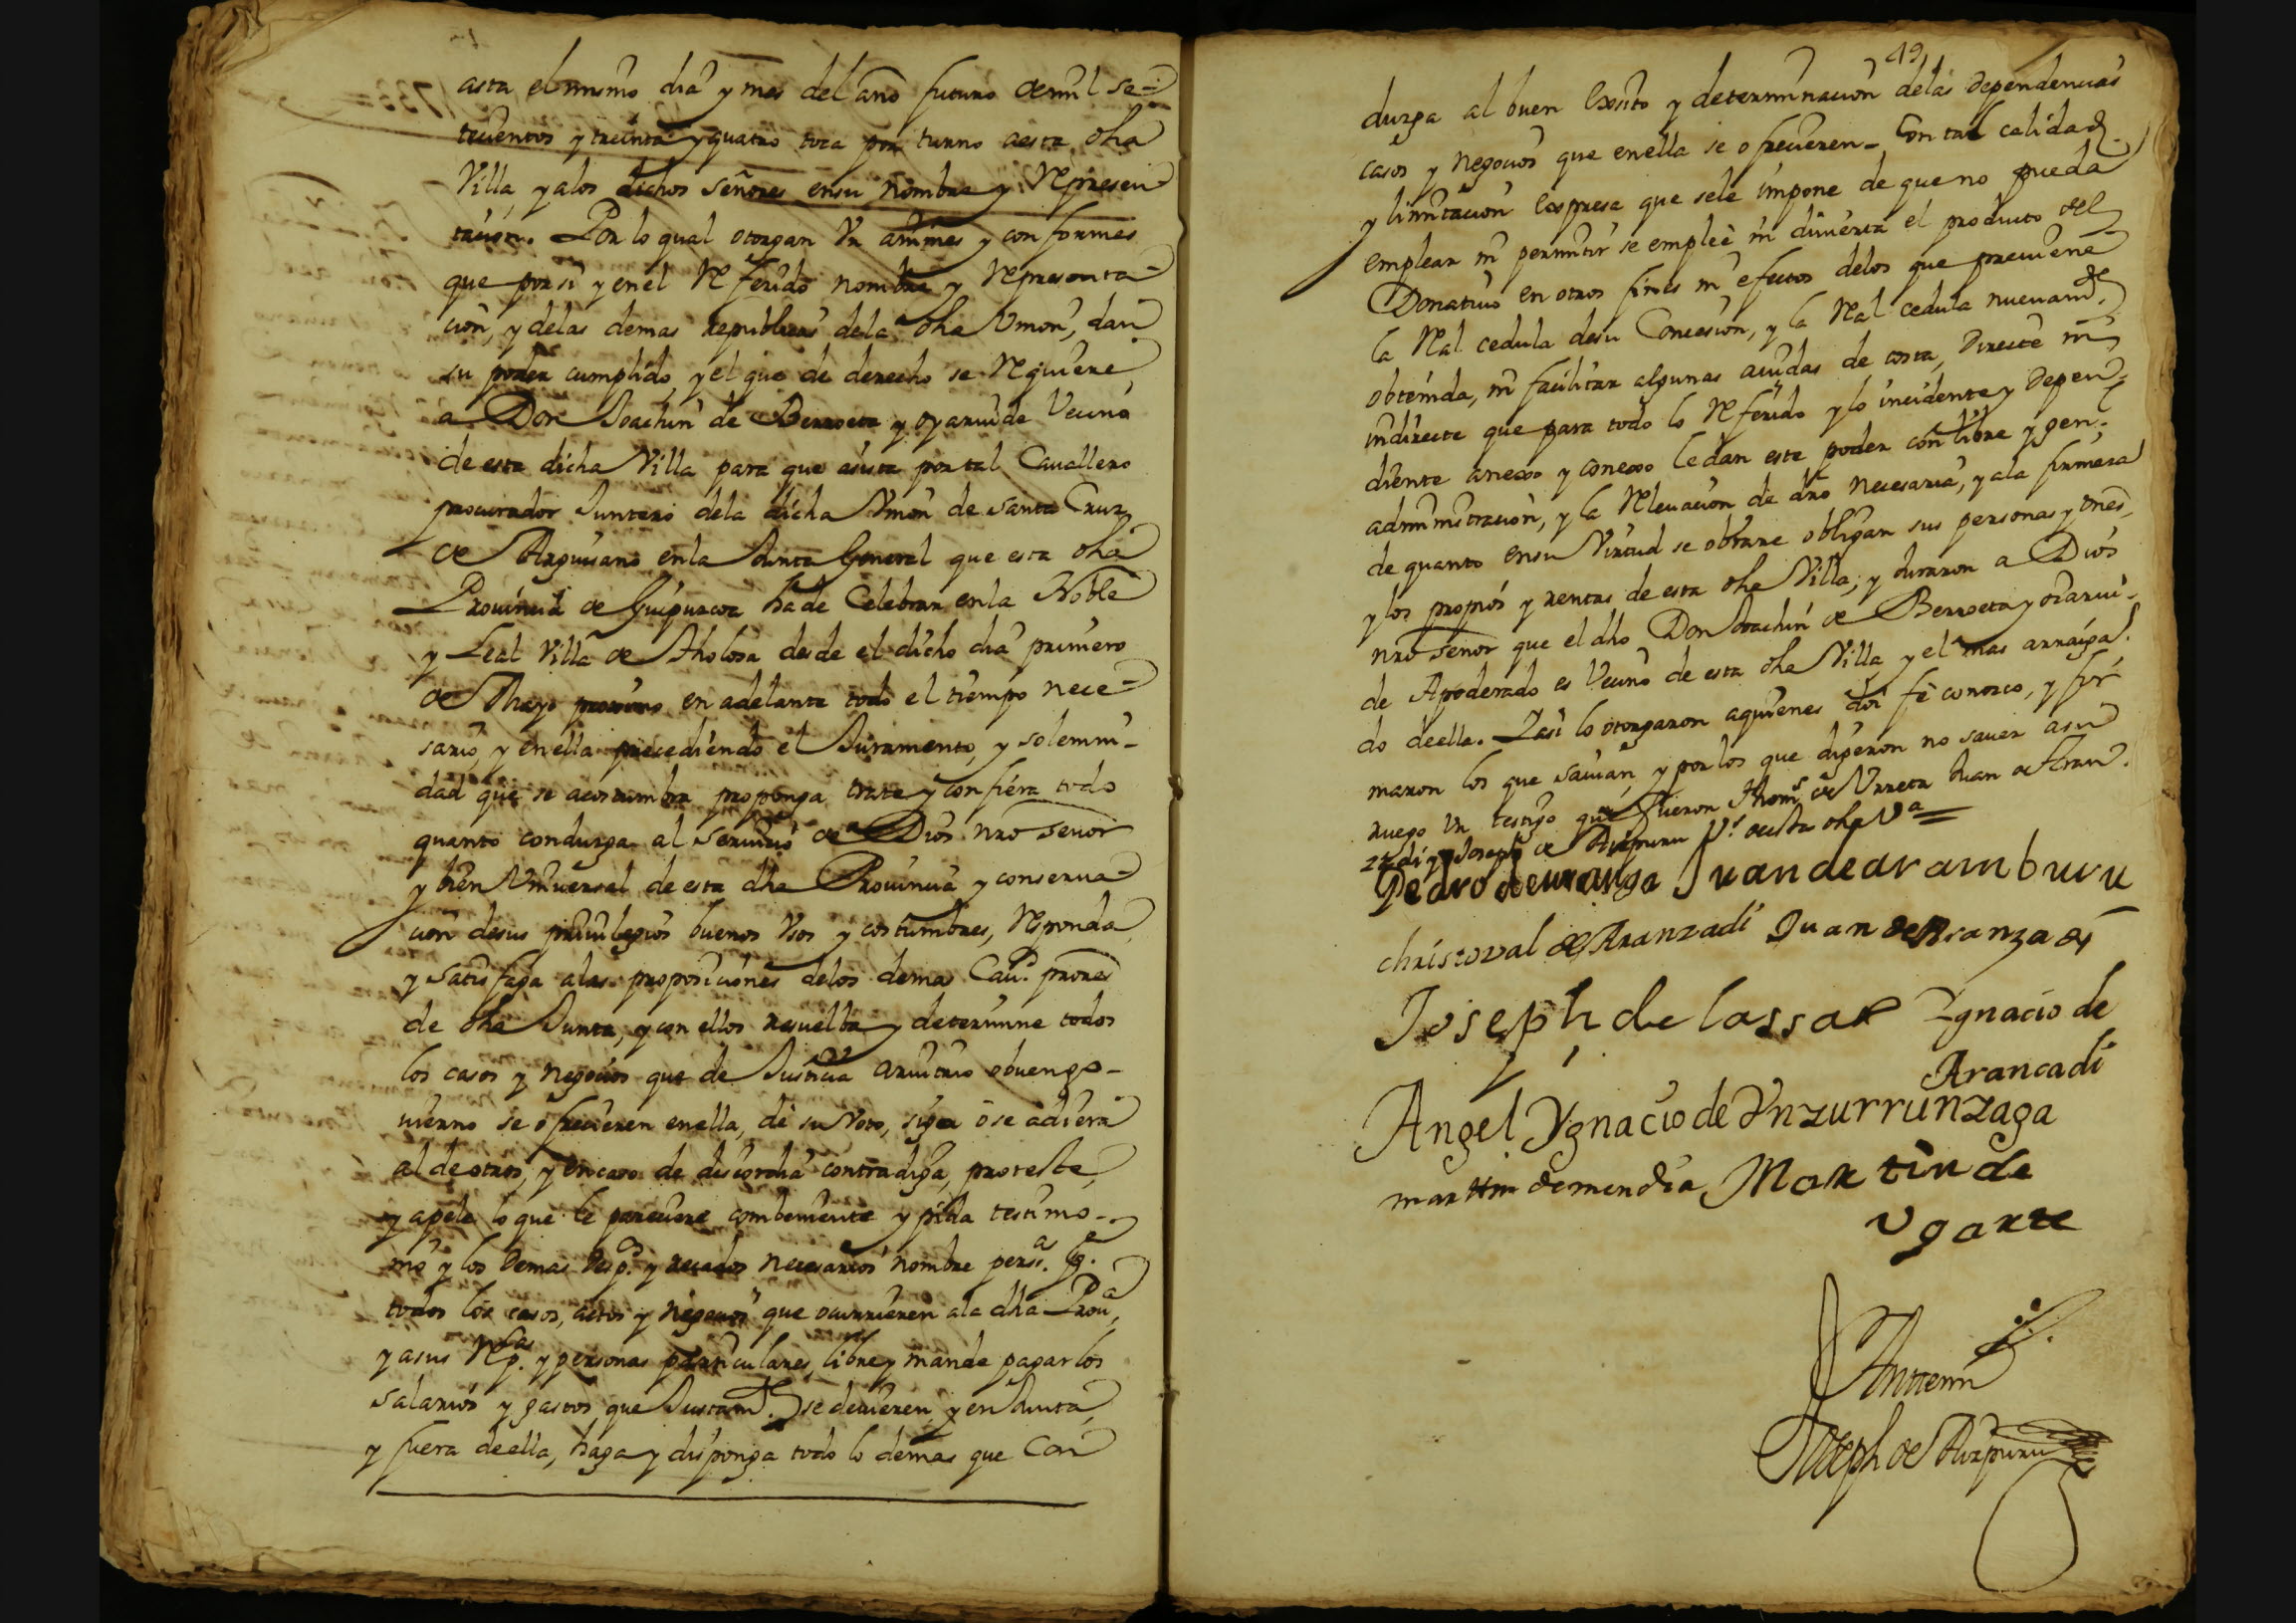 asta el mismo dia y mes del año futuro de mil se-
tecientos y treinta y quatro toca por turno a esta dha
Villa, y alos dichos señores en su nombre y Represen
tacion. Por lo qual otorgan Vnanimes y conformes
que por si y en el Referido nombre y Representa-
cion, y delas demas Republicas dela dha Vnion, dan
su poder cumplido, y el que de derecho se Requiere
a Don Joachin de Berroeta y oyaruide Vecino
de esta dicha Villa para que asista por tal Cauallero
procurador Juntero dela dicha Vnion de Santa Cruz
de Arguisano en la Junta General que esta dha
Prouincia de Guipuzcoa ha de Celebrar en la Noble
y Leal Villa de Tholosa desde el dicho dia primero
de Mayo proximo en adelante todo el tiempo nece-
sario, y en ella precediendo el Juramento, y solemni-
dad que se acostumbra proponga trate y confiera todo
quanto condurga al seruicio de Dios nro señor
y bien Vniuersal de esta dha Prouincia y conserua-
cion desus priuilegios buenos Vsos y costumbres, Responda
y satisfaga alas proposiciones delos demas Cau.s prores
de dha Junta, y con ellos resuelba y determine todos
los casos y negocios que de Justicia aruitrio o buen go-
uierno se ofrecieren en ella, dè su Voto, siga ò se adiera
al de otros, y en caso de discordia contradiga, proteste,
y apele lo que le pareciere combeniente y pida testimo-
nio y los demas desp.os y recados necesarios nombre pers.as
todos los casos, actos y negocios que ocurrieren ala dha Prou.a
y asus Rp.as y personas particulares, libre y mande pagar los
salarios y gastos que Justam.te se deuieren, y en Junta,
y fuera de ella, haga y disponga todo lo demas que Con
49
durga al buen Exsito y determinacion delas dependencias
casos y negocios que en ella se ofrecieren - Con tal calidad
y limitacion Expresa que sele impone de que no pueda
emplear ni permitir se empleè ni diuierta el producto del
Donatiuo en otros fines ni efectos delos que preuiene
la Real cedula desu Concesion, y la Real cedula nueuam.te
obtenida, ni facilitar algunas aiudas de costa, directe ni
indirecte que para todo lo Referido y lo incidente y depen-
diente anexo y conexo le dan este poder con libre y gen.l
administracion, y la Releuacion de dro necesaria, y ala firmeza
de quanto en su Virtud se obrare obligan sus personas y vnes,
y los propios y rentas de esta dha Villa, y Juraron a Dios
nro señor que el dho Don Joachin de Berroeta y ozarui-
de Apoderado es Vecino de esta dha Villa y el mas arraiga-
do de ella. Y asi lo otorgaron aquienes doi fè conozco, y fir
maron los que sauian, y por los que digeron no sauer asu
ruego Vn testigo que fueron Thom.s de Vrreta Juan de Aran-
zadi y Joseph de Aizpuru V.s de esta dha V.a =
Pedro de uranga Juan de aramburu
christoval de Aranzadi Juan de Aranzadi
Joseph de lassao Ygnacio de
Arancadi
Angel Ygnacio de Vnzurrunzaga
martin de mendia Martin de
Vgarte
Antemi
Joseph de Aizpuru